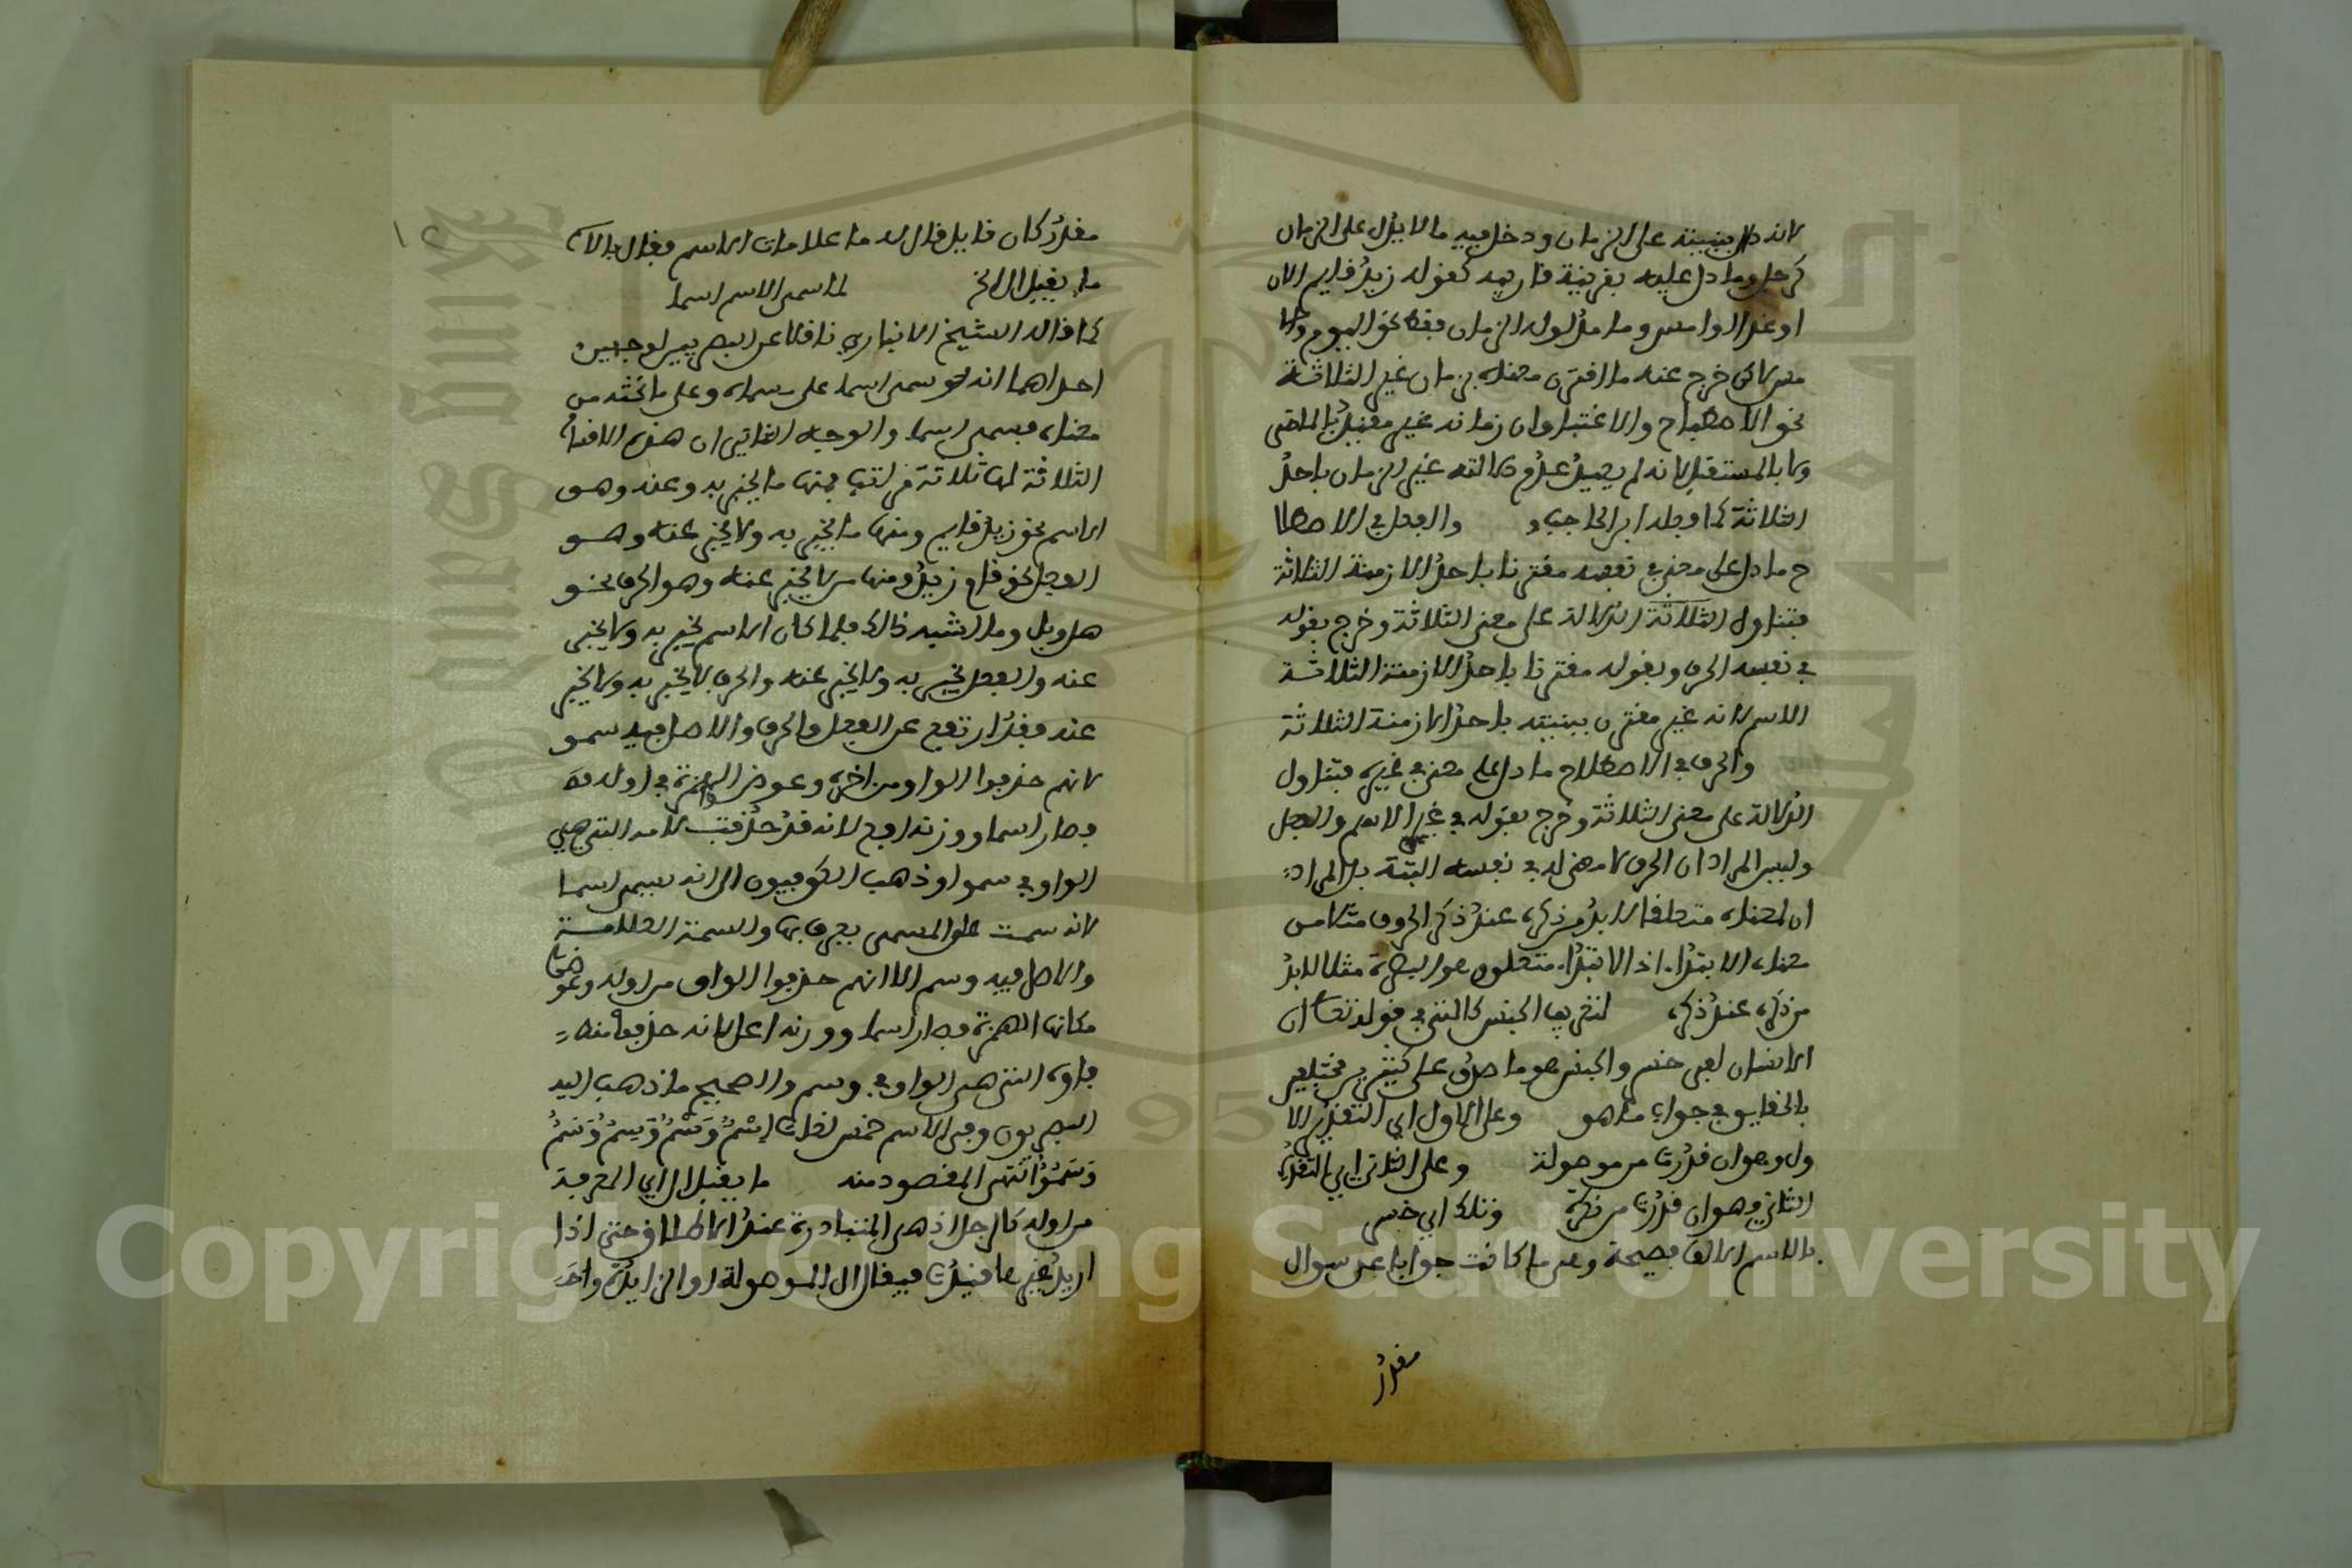 لانه دل ببنيته على الزمان ودخل فيه ما لا يدل على الزمان
كرجل وما دل عليه بقرينة خارجه كقوله زيد قايم الان
او غدا او امس وما مدلوله الزمان فقط نحو اليوم
خرج عنه ما اقترن معناه بزمان غير الثلاثة
نحو الاصطباح والاغتباق وان زمانه غير مقيد بالماضى
ولا بالمستقبل لانه لم يحصل عدم دلالته غير الزمان باحد
الثلاثة كما وجد ابن الحاجب والفعل في الاصطلا
ح ما دل على معنى في نفسه مقترنا باحد الازمنة الثلاثة
فتناول الثلاثة الدلالة على معنى الثلاثة وخرج بقوله
في نفسه الحرف وبقوله مقترنا باحد الازمنة الثلاثة
الاسم لانه غير مقترن ببنيته باحد الازمنة الثلاثة
والحرف في الاصطلاح ما دل على معنى في غيره فتناول
الدلالة على معنى الثلاثة وخرج بقوله في غيره الاسم والفعل
وليس المراد ان الحرف لا معنى له في نفسه البتة بل المراد
ان لمعناه متعلقا لا بد من ذكره عند ذكر الحرف مثلا من
معناه الابتداء اذ الابتداء متعلق هو البصرة مثلا لا بد
من ذكره عند ذكره لتعريف الجنس كالتى في قوله تعا ان
الانسان لفى خسر والجنس هو ما صدق على كثيرين مختلفين
بالحقايق في جواب ما هو وعلى الاول اي التقدير الا
ول وهو ان قدرت من موصولة وعلى الثاني اي التقدير
الثاني وهو ان قدرت من نكرة وتلك اي خص
بالاسم الالف فصيحة وهى ما كانت جوابا عن سوال
مقدر
١٢
مقدر كان قايل قال له ما علامات الاسم فقال بالا
ما يقبل ال الخ لما سمى الاسم اسما
كما قاله الشيخ الانباري ناقلا عن البصريين لوجهين
احداهما انه لو سمى اسما على سماه وعلى ما تحته من
معناه فسمى اسما والوجه الثاني ان هذه الاقسا
الثلاثة لها ثلاثة مراتب فمنها ما يخبر به وعنه وهو
الاسم نحو زيد قايم ومنها ما يخبر به ولا يخبر عنه وهو
الفعل نحو قام زيد ومنها من لا يخبر عنه وهو الحرف نحو
هل وبل وما اشبه ذالك فلما كان الاسم يخبر به ويخبر
عنه والفعل يخبر به ولا يخبر عنه والحرف لا يخبر به ولا يخبر
عنه فقد ارتفع عن الفعل والحرف والاصل فيه سمو
لانهم حذفوا الواو من اخره وعوضوا الهمزة في اوله
فصار اسما ووزنه افع لانه قد حذفت لامه التى هي
الواو في سمو وذهب الكوفيون الى انه سمى اسما
لانه سمت على المسمى يعرف بها والسمة العلامة
والاصل فيه وسم الا انهم حذفوا الواو من اوله وعوضوا
مكانها الهمزة فصار اسما ووزنه اعل لانه حذف منه
فاوه التى هى الواو في وسم والصحيح ما ذهب اليه
البصريون وفى الاسم خمس لغات اِسْمٌ وَسِمٌ وَسُمٌ
انتهى المقصود منه ما يقبل ال اي المعرفة
من اوله كالرجل اذ هى المتبادرة عند الاطلاق حتى اذا
اريد غيرها قيدت فيقال ال الموصولة او الزايدة